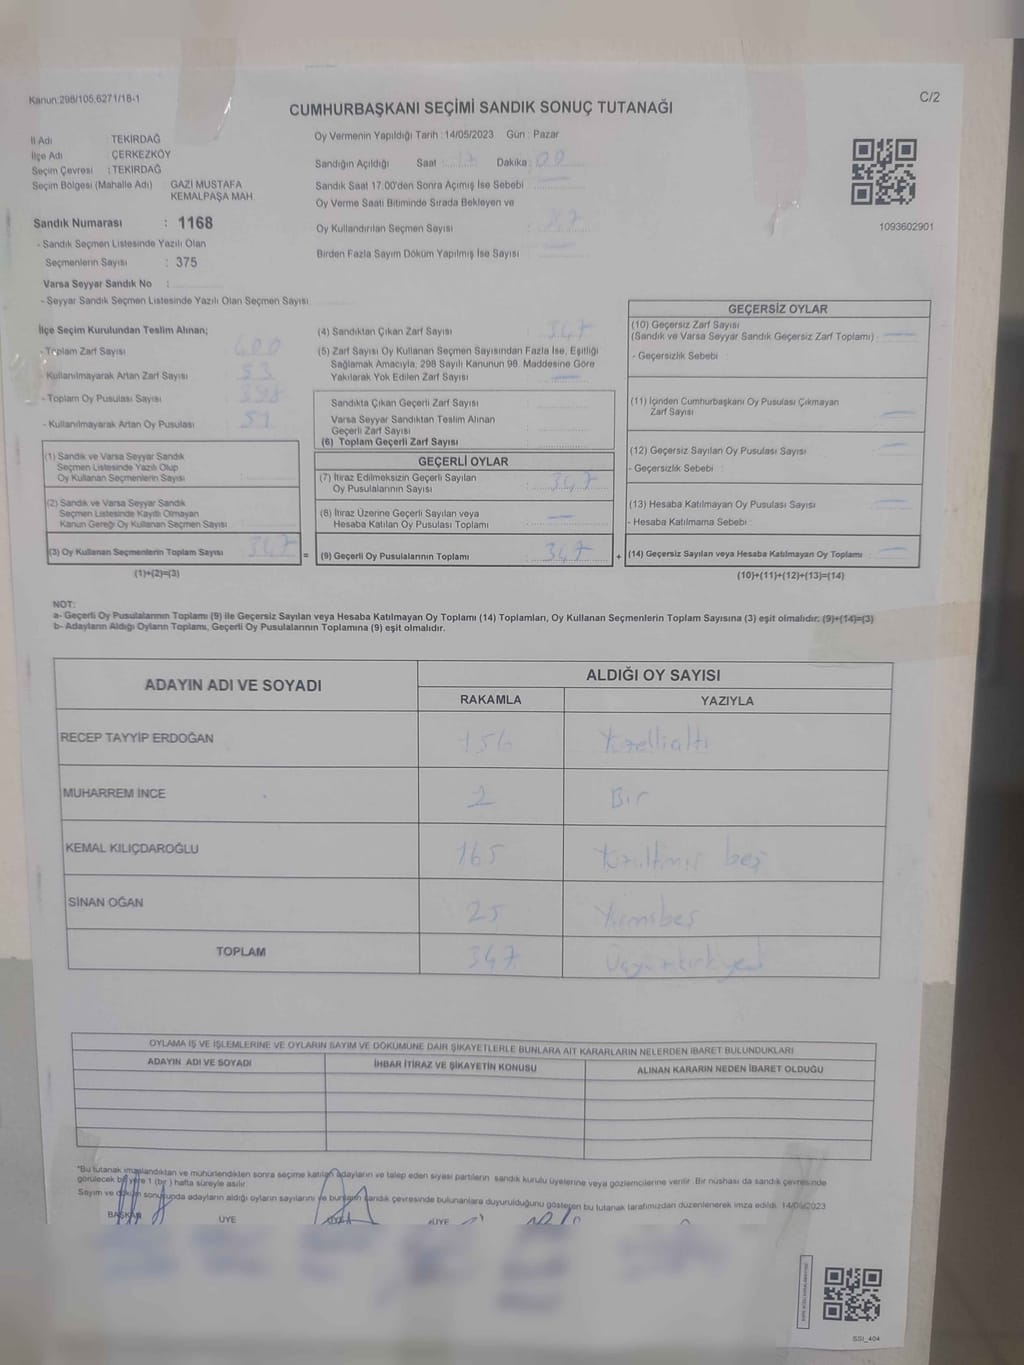 Kanun:298/105,6271/18-1
C/2
CUMHURBAŞKANI SEÇİMİ SANDIK SONUÇ TUTANAĞI
İl Adı : TEKİRDAĞ
İlçe Adı : ÇERKEZKÖY
Seçim Çevresi : TEKİRDAĞ
Seçim Bölgesi (Mahalle Adı) : GAZİ MUSTAFA
KEMALPAŞA MAH.
Sandık Numarası : 1168
- Sandık Seçmen Listesinde Yazılı Olan
Seçmenlerin Sayısı : 375
Varsa Seyyar Sandık No :
- Seyyar Sandık Seçmen Listesinde Yazılı Olan Seçmen Sayısı
Oy Vermenin Yapıldığı Tarih : 14/05/2023 Gün : Pazar
Sandığın Açıldığı Saat : 17 Dakika : 00
Sandık Saat 17:00'den Sonra Açımış İse Sebebi
Oy Verme Saati Bitiminde Sırada Bekleyen ve
Oy Kullandırılan Seçmen Sayısı :
Birden Fazla Sayım Döküm Yapılmış İse Sayısı :
1093602901
İlçe Seçim Kurulundan Teslim Alınan;
- Toplam Zarf Sayısı : 400
- Kullanılmayarak Artan Zarf Sayısı : 53
- Toplam Oy Pusulası Sayısı : 398
- Kullanılmayarak Artan Oy Pusulası : 51
(1) Sandık ve Varsa Seyyar Sandık
Seçmen Listesinde Yazılı Olup
Oy Kullanan Seçmenlerin Sayısı
(2) Sandık ve Varsa Seyyar Sandık
Seçmen Listesinde Kayıtlı Olmayan
Kanun Gereği Oy Kullanan Seçmen Sayısı
(3) Oy Kullanan Seçmenlerin Toplam Sayısı : 347
(1)+(2)=(3)
=
(4) Sandıktan Çıkan Zarf Sayısı : 347
(5) Zarf Sayısı Oy Kullanan Seçmen Sayısından Fazla İse, Eşitliği
Sağlamak Amacıyla; 298 Sayılı Kanunun 98. Maddesine Göre
Yakılarak Yok Edilen Zarf Sayısı :
Sandıkta Çıkan Geçerli Zarf Sayısı
Varsa Seyyar Sandıktan Teslim Alınan
Geçerli Zarf Sayısı
(6) Toplam Geçerli Zarf Sayısı
GEÇERLİ OYLAR
(7) İtiraz Edilmeksizin Geçerli Sayılan
Oy Pusulalarının Sayısı : 347
(8) İtiraz Üzerine Geçerli Sayılan veya
Hesaba Katılan Oy Pusulası Toplamı :
(9) Geçerli Oy Pusulalarının Toplamı : 347
+
GEÇERSİZ OYLAR
(10) Geçersiz Zarf Sayısı
(Sandık ve Varsa Seyyar Sandık Geçersiz Zarf Toplamı) :
- Geçersizlik Sebebi :
(11) İçinden Cumhurbaşkanı Oy Pusulası Çıkmayan
Zarf Sayısı
(12) Geçersiz Sayılan Oy Pusulası Sayısı :
- Geçersizlik Sebebi :
(13) Hesaba Katılmayan Oy Pusulası Sayısı :
- Hesaba Katılmama Sebebi :
(14) Geçersiz Sayılan veya Hesaba Katılmayan Oy Toplamı :
(10)+(11)+(12)+(13)=(14)
NOT:
a- Geçerli Oy Pusulalarının Toplamı (9) ile Geçersiz Sayılan veya Hesaba Katılmayan Oy Toplamı (14) Toplamları, Oy Kullanan Seçmenlerin Toplam Sayısına (3) eşit olmalıdır. (9)+(14)=(3)
b- Adayların Aldığı Oyların Toplamı, Geçerli Oy Pusulalarının Toplamına (9) eşit olmalıdır.
ADAYIN ADI VE SOYADI
ALDIĞI OY SAYISI
RAKAMLA YAZIYLA
RECEP TAYYİP ERDOĞAN 156 Yüzellialtı
MUHARREM İNCE Bir
KEMAL KILIÇDAROĞLU 165 Yüzaltmış beş
SİNAN OĞAN 25 Yirmibeş
TOPLAM 347 Üçyüzkırkyedi
OYLAMA İŞ VE İŞLEMLERİNE VE OYLARIN SAYIM VE DÖKÜMÜNE DAİR ŞİKAYETLERLE BUNLARA AİT KARARLARIN NELERDEN İBARET BULUNDUKLARI
ADAYIN ADI VE SOYADI İHBAR İTİRAZ VE ŞİKAYETİN KONUSU ALINAN KARARIN NEDEN İBARET OLDUĞU
*Bu tutanak imzalandıktan ve mühürlendikten sonra seçime katılan adayların ve talep eden siyasi partilerin sandık kurulu üyelerine veya gözlemcilerine verilir. Bir nüshası da sandık çevresinde
görülecek bir yere 1 (bir) hafta süreyle asılır.
Sayım ve döküm sonucunda adayların aldığı oyların sayılarını ve bunların sandık çevresinde bulunanlara duyurulduğunu gösteren bu tutanak tarafımızdan düzenlenerek imza edildi. 14/05/2023
BAŞKAN ÜYE ÜYE
SSI_404